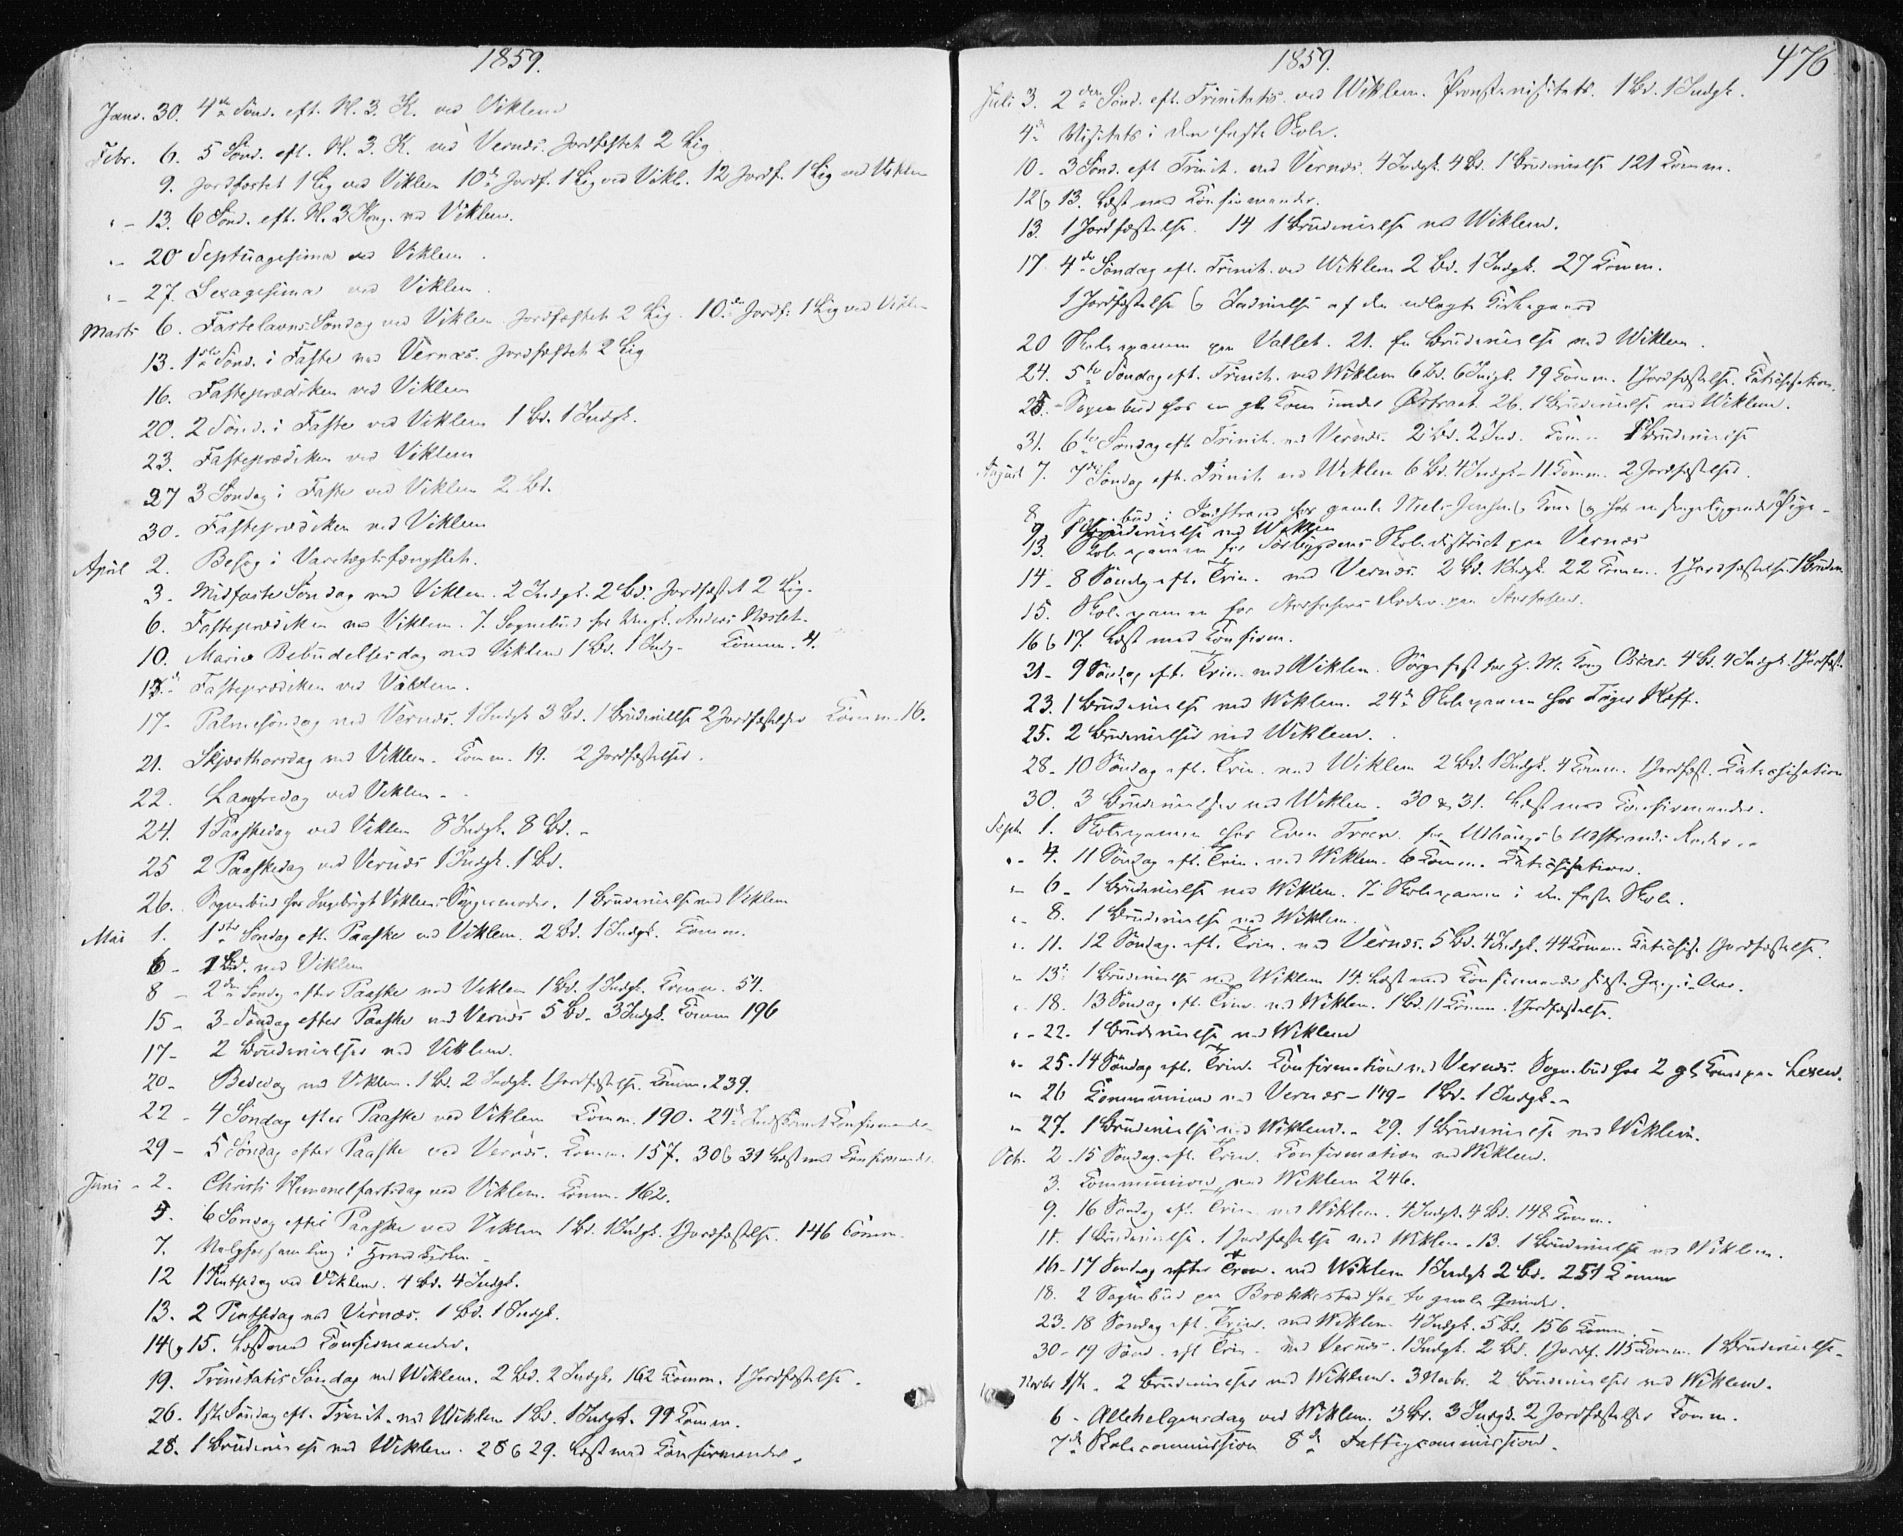 1859.
Janr. 30. 4de Sønd. eft. H. 3. K. ved Viklem
Febr. 6. 5 Sønd. eft. H. 3. K. ved Vernæs. Jordfæstet 2 Lig
9. Jordfæstet 1 Lig ved Viklem 10de Jordf. 1 Lig ved Vikl. 12 Jordf. 1 Lig ved Viklem
" - 13. 6 Sønd. eft. H. 3 Kong. ved Viklem.
" - 20 Septuagesima ved Viklem
" - 27. Sexagesima ved Viklem
Marts 6. Fastelavns Søndag ved Viklem Jordfæstet 2 Lig. 10de Jordf. 1 Lig ved Viklem
13. 1ste Sønd. i Faste ved Vernæs. Jordfæstet 2 Lig
16. Fasteprædiken ved Viklem
20. 2 Sønd. i Faste ved Viklem 1 Bd. 1 Indgk.
23. Fasteprædiken ved Viklem
27 3 Søndag i Faste ved Viklem 2 Bd.
30. Fasteprædiken ved Viklem
April 2. Besøg i Varetægtsfængslet.
3. Midfaste Søndag ved Viklem. 2 Indgk. 2 Bd. Jordfæstet 2 Lig.
6. Fasteprædiken ved Viklem. 7. Sognebud for Anders
10. Mariæ Bebudelsesdag ved Viklem 1 Bd. 1 Indg. Komm. 4.
13. Fasteprædiken ved Viklem.
17- Palmesøndag ved Vernæs. 1 Indgk 3 Bd. 1 Brudevielse 2 Jordfæstelser Komm. 16.
21. Skjærthorsdag ved Viklem. Komm. 19. 2 Jordfæstelser.
22. Langfredag ved Viklem - -
24. 1 Paaskedag ved Viklem 8 Indgk. 8 Bd. -
25 2 Paaskedag ved Vernæs 1 Indgk. 1 Bd.
26. Sognebud hos Ingebrigt Viklems 1 Brudevielse ved Viklem
Mai 1. 1ste Søndag eft. Paaske ved Viklem. 2 Bd. 1 Indgk. Komm.
6 - 1 Bd. ved Viklem
8 - 2den Søndag efter Paaske ved Viklem 1 Bd. 1 Indgk. Komm. 54.
15 - 3. Søndag efter Paaske ved Vernæs 5 Bd. 3 Indgk. Komm 196
17- 2 Brudevielser ved Viklem.
20- Bededag ved Viklem. 1 Bd. 2 Indgk. 1 Jordfæstelse. Komm. 239.
22 - 4 Søndag efter Paaske ved Viklem Komm. 190. 24de Indskrevet Konfirmander
29 - 5 Søndag efter Paaske ved Vernæs. Komm. 157. 30 & 31 Læst med Konfirmander.
Juni - 2. Christi Himmelfartsdag ved Viklem. Komm. 162.
5. 6 Søndag efter Paaske ved Viklem 1 Bd. 1 Indgk. 1 Jordfæstelse. 146 Komm.
7. Valgforsamling i
12 1 Pintsedag ved Viklem. 4 Bd. 4 Indgk.
13. 2 Pintsedag ved Vernæs. 1 Bd. 1 Indgk.
14 & 15. Læst med Konfirmander.
19. Trinitatis Søndag ved Wiklem. 2 Bd. 2 Indgk. 162 Komm. 1 Jordfæstelse.
26. 1ste Søndag eft. Trinit. ved Wiklem 1 Bd. 1 Indgk. 99 Komm.
28. 1 Brudevielse ved Wiklem. 28 & 29. Læst med Konfirmander.
1859.
476
Juli 3. 2den Sønd. eft. Trinitatis. ved Wiklem. Provstevisitats. 1 Bd. 1 Indgk.
4de Visitats i den faste Skole.
10. 3 Sønd. eft Trinit. ved Vernæs. 4 Indgk. 4 Bd. 1 Brudevielse 121 Komm.
12 & 13. Læst med Konfirmander.
13. 1 Jordfæstelse. 14 1 Brudevielse ved Wiklem.
17 4de Søndag eft. Trinit. ved Wiklem 2 Bd. 1 Indgk. 27 Komm.
1 Jordfæstelse & Indvielse af den udlagte Kirkegaard
20 Skoleexamen paa Vallet. 21. en Brudevielse ved Wiklem.
24. 5te Søndag eft. Trinit. ved Wiklem 6 Bd. 6 Indgk. 19 Komm. 1 Jordfæstelse. Katechisation.
25. - Sognebud hos en gl. Kone under Østraat. 26. 1 Brudevielse ved Wiklem.
31. 6te Søndag eft. Trinit. ved Vernæs. 2 Bd. 2 Ind. Komm. 1 Brudevielse
August 7. 7de Søndag eft. Trinit ved Wiklem 6 Bd. 4 Indgk - 11 Komm. 2 Jordfæstelser.
8. Sognebud i hos gamle Niels Jensen & Kone & hos en sengeliggende Pige -
9. 1 Brudevielse ved Wiklem
13. Skoleexamen for Skoledistrict paa Vernæs
14 - 8 Søndag eft. Trin. ved Vernæs. 2 Bd. 1 Indgk. 22 Komm. 1 Jordfæstelse 1 Bruden
15. Skoleexamen for
16 & 17. Læst med Konfirm.
21- 9 Søndag eft. Trin. ved Wiklem. Sørgefest for H. M. Kong Oscar. 4 Bd. 4 Indgk. 1 Jordfæst.
23. 1 Brudevielse ved Wiklem. 24de Skoleexamen hos Hoff.
25. 2 Brudevielser ved Wiklem.
28- 10 Søndag eft. Trin. ved Wiklem 2 Bd. 1 Indgk. 4 Komm. 1 Jordfæst. Katechisation
30. 3 Brudevielser ved Wiklem. 30 & 31. Læst med Konfirmander.
Septb. 1. Skoleexamen hos Even for &
" - 4. 11 Søndag eft. Trin. ved Wiklem. 6 Komm. Katechisation.
" - 6 - 1 Brudevielse ved Wiklem. 7. Skoleexamen i den faste Skole.
" - 8. 1 Brudevielse ved Wiklem.
" - 11. 12 Søndag. eft. Trin. ved Vernæs. 5 Bd. 4 Indgk. 44 Komm. Katechis. 1 Jordfæstelse.
" - 13de 1 Brudevielse ved Wiklem 14. Læst med Konfirmander sidste Gang i Aar.
" - 18. 13 Søndag eft. Trin. ved Wiklem. 1 Bd. 11 Komm. 1 Jordfæstelse.
" - 22. 1 Brudevielse ved Wiklem
" - 25. 14 Søndag eft. Trin. Konfirmation ved Vernæs. Sognebud hos 2 gl Koner paa
" - 26 Kommunion ved Vernæs - 149 - 1 Bd. 1 Indgk. -
" - 27. 1 Brudevielse ved Wiklem. - 29. 1 Brudevielse ved Wiklem.
Oct. 2. 15 Søndag. eft. Trin. Konfirmation ved Wiklem.
3. Kommunion ved Wiklem 246.
9. 16 Søndag eft. Trin. ved Wiklem. 4 Indgk. 4 Bd. 148 Komm.
11. 1 Brudevielse. 1 Jordfæstelse ved Wiklem. 13. 1 Brudevielse ved Wiklem.
16 - 17 Søndag efter Trin. ved Wiklem 1 Indgk 2 Bd. 251 Komm
18. 2 Sognebud paa Brækkestad hos to gamle Qvinder.
23. 18 Søndag eft. Trin. ved Wiklem 4 Indgk. 5 Bd. 156 Komm
30 - 19 Sønd. eft Trin. ved Vernæs. 1 Indgk. 2 Bd. 1 Jordf. 115 Komm. 1 Brudevielse -
Novbr. 1ste. 2 Brudevielser ved Wiklem. 3 Novbr. 2 Brudevielser ved Wiklem.
6 - Allehelgensdag ved Wiklem. 3 Bd. 3 Indgk. 2 Jordfæstelser Komm.
7de Skolecommission 8de Fattigcommission.